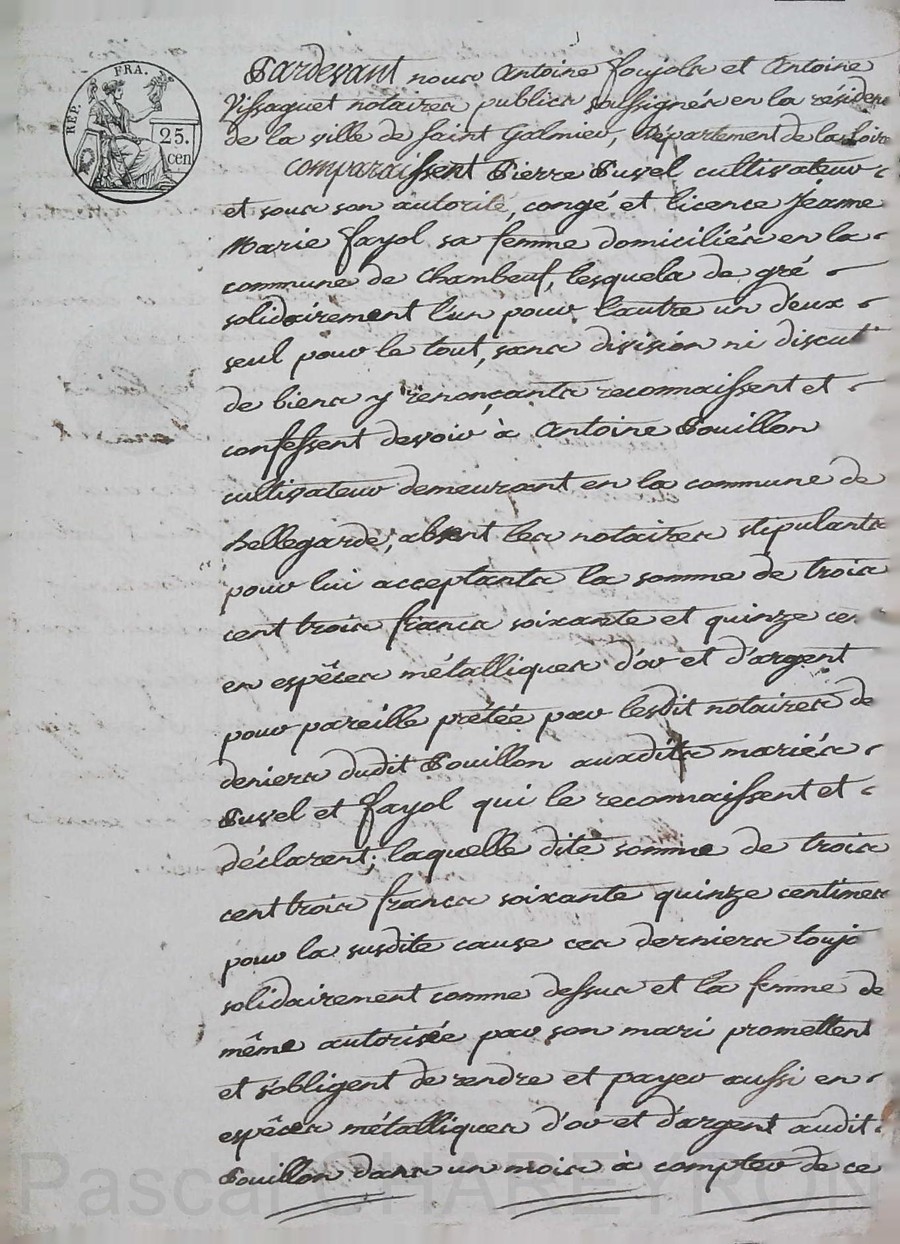 RÉP. FRA.
25.
cen
Pardevant nous Antoine Foujols et Antoine
Vissaguet notaires publics soussignés en la résiden
de la ville de Saint Galmier, département de la Loire
comparaissent Pierre Buvel cultivateur
et sous son autorité, congé et licence Jeanne
Marie Fayol sa femme domiciliés en la
commune de Chambeuf, lesquels de gré
solidairement l'un pour l'autre un d'eux
seul pour le tout, sans division ni discut
de biens y renonçants reconnaissent et
confessent devoir à Antoine Bouillon
cultivateur demeurant en la commune de
Bellegarde, absent les notaires stipulants
pour lui acceptants la somme de trois
cent trois francs soixante et quinze ce
en espèces métalliques d'or et d'argent
pour pareille prêtée par lesdit notaires de
deniers dudit Bouillon auxdits mariés
Buvel et Fayol qui le reconnaissent et
déclarent; laquelle dite somme de trois
cent trois francs soixante quinze centimes
pour la susdite cause ces derniers toujo
solidairement comme dessus et la femme de
même autorisée par son mari promettent
et s'obligent de rendre et payer aussi en
espèces métalliques d'or et d'argent audit
Bouillon dans un mois à compter de ce
Pascal CHAREYRON